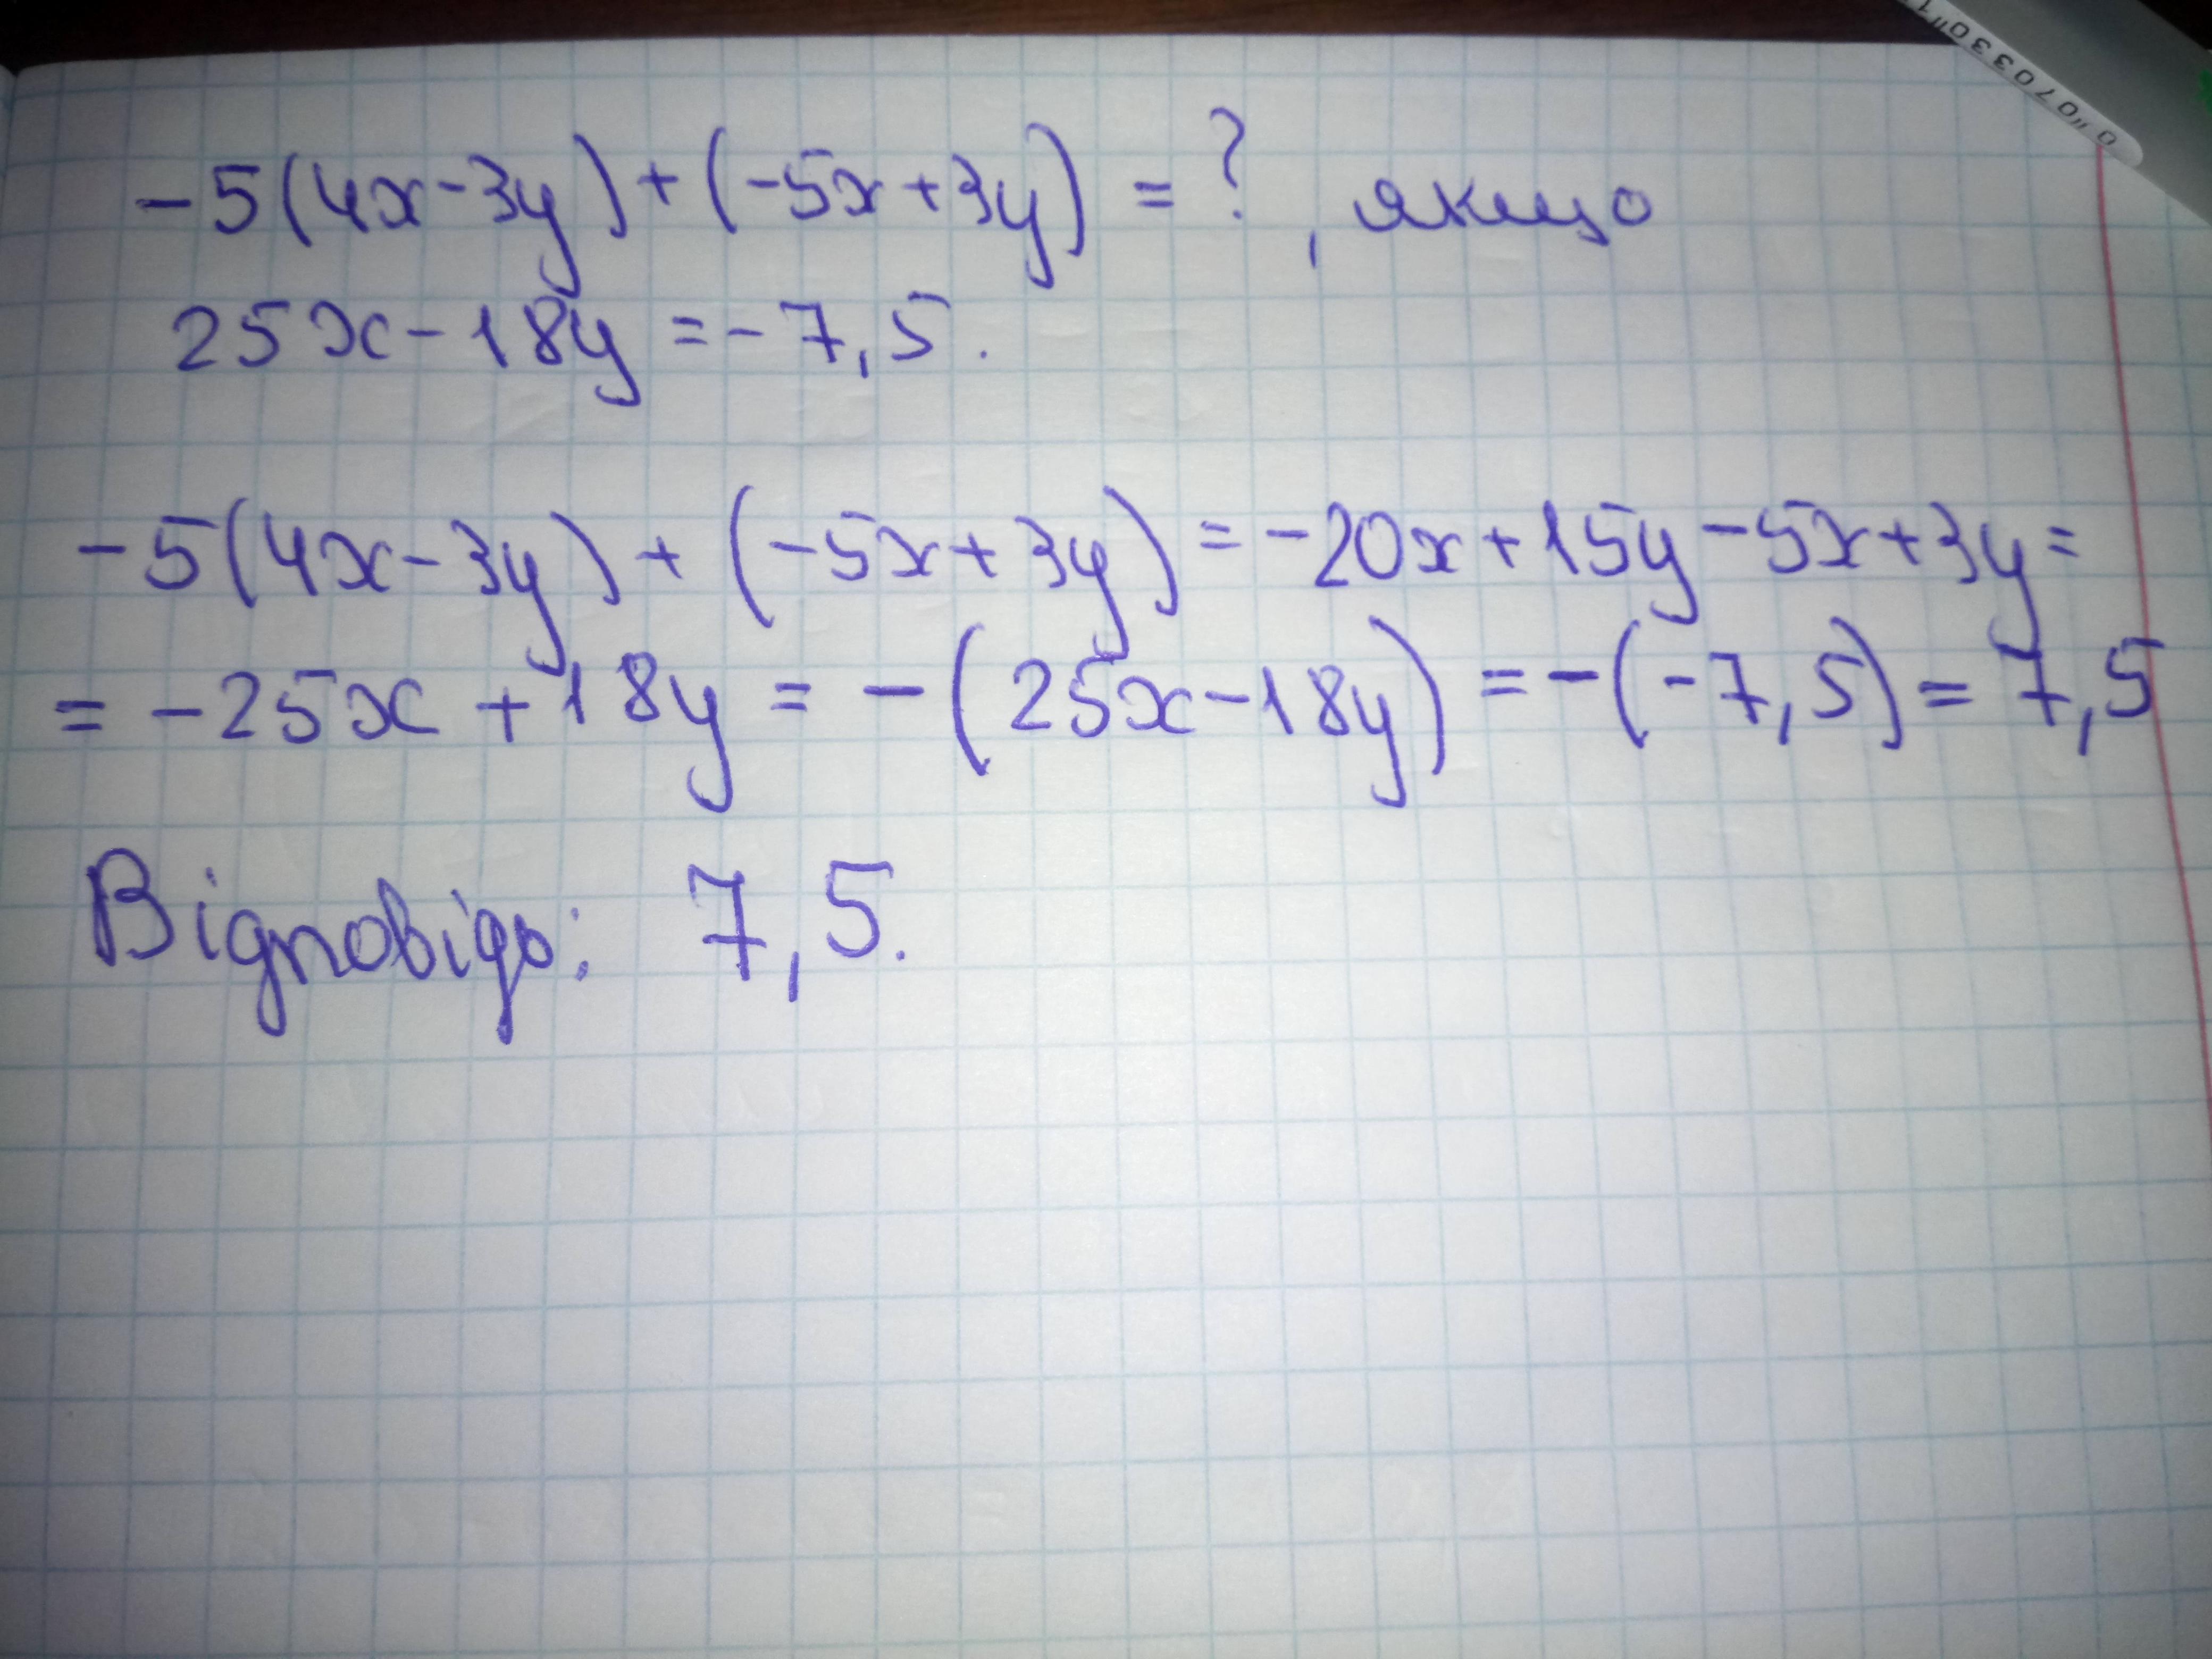 -5(4x-3y)+(-5x+3y)=?, якщо
25x-18y=-7,5.
-5(4x-3y)+(-5x+3y)=-20x+15y-5x+3y=
=-25x+18y=-(25x-18y)=-(-7,5)=7,5
Відповідь: 7,5.